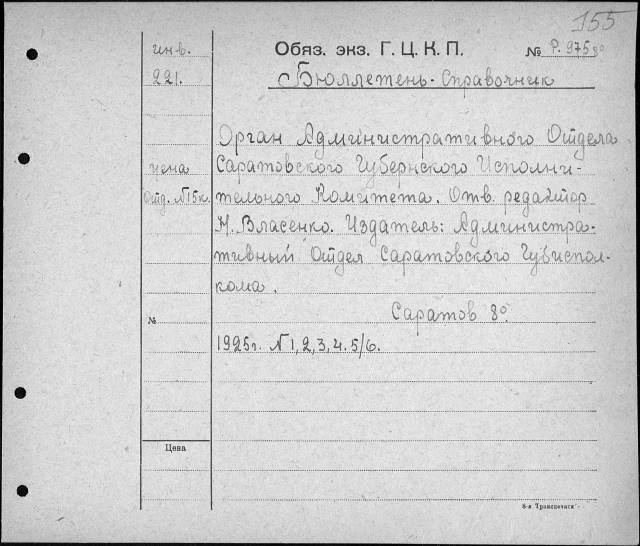 155
инв. Обяз. экз. Г. Ц. К. П. № Р. 975 8°
221. Бюллетень-Справочник
Орган Административного Отдела
цена Саратовского Губернского Исполни-
Отд. N 15 к. тельного Комитета. Отв. редактор
Н. Власенко. Издатель: Администра-
тивный Отдел Саратовского Губиспол-
кома.
№ Саратов 8°.
1925г. N 1, 2, 3, 4. 5/6.
Цена
8-я Транспечати